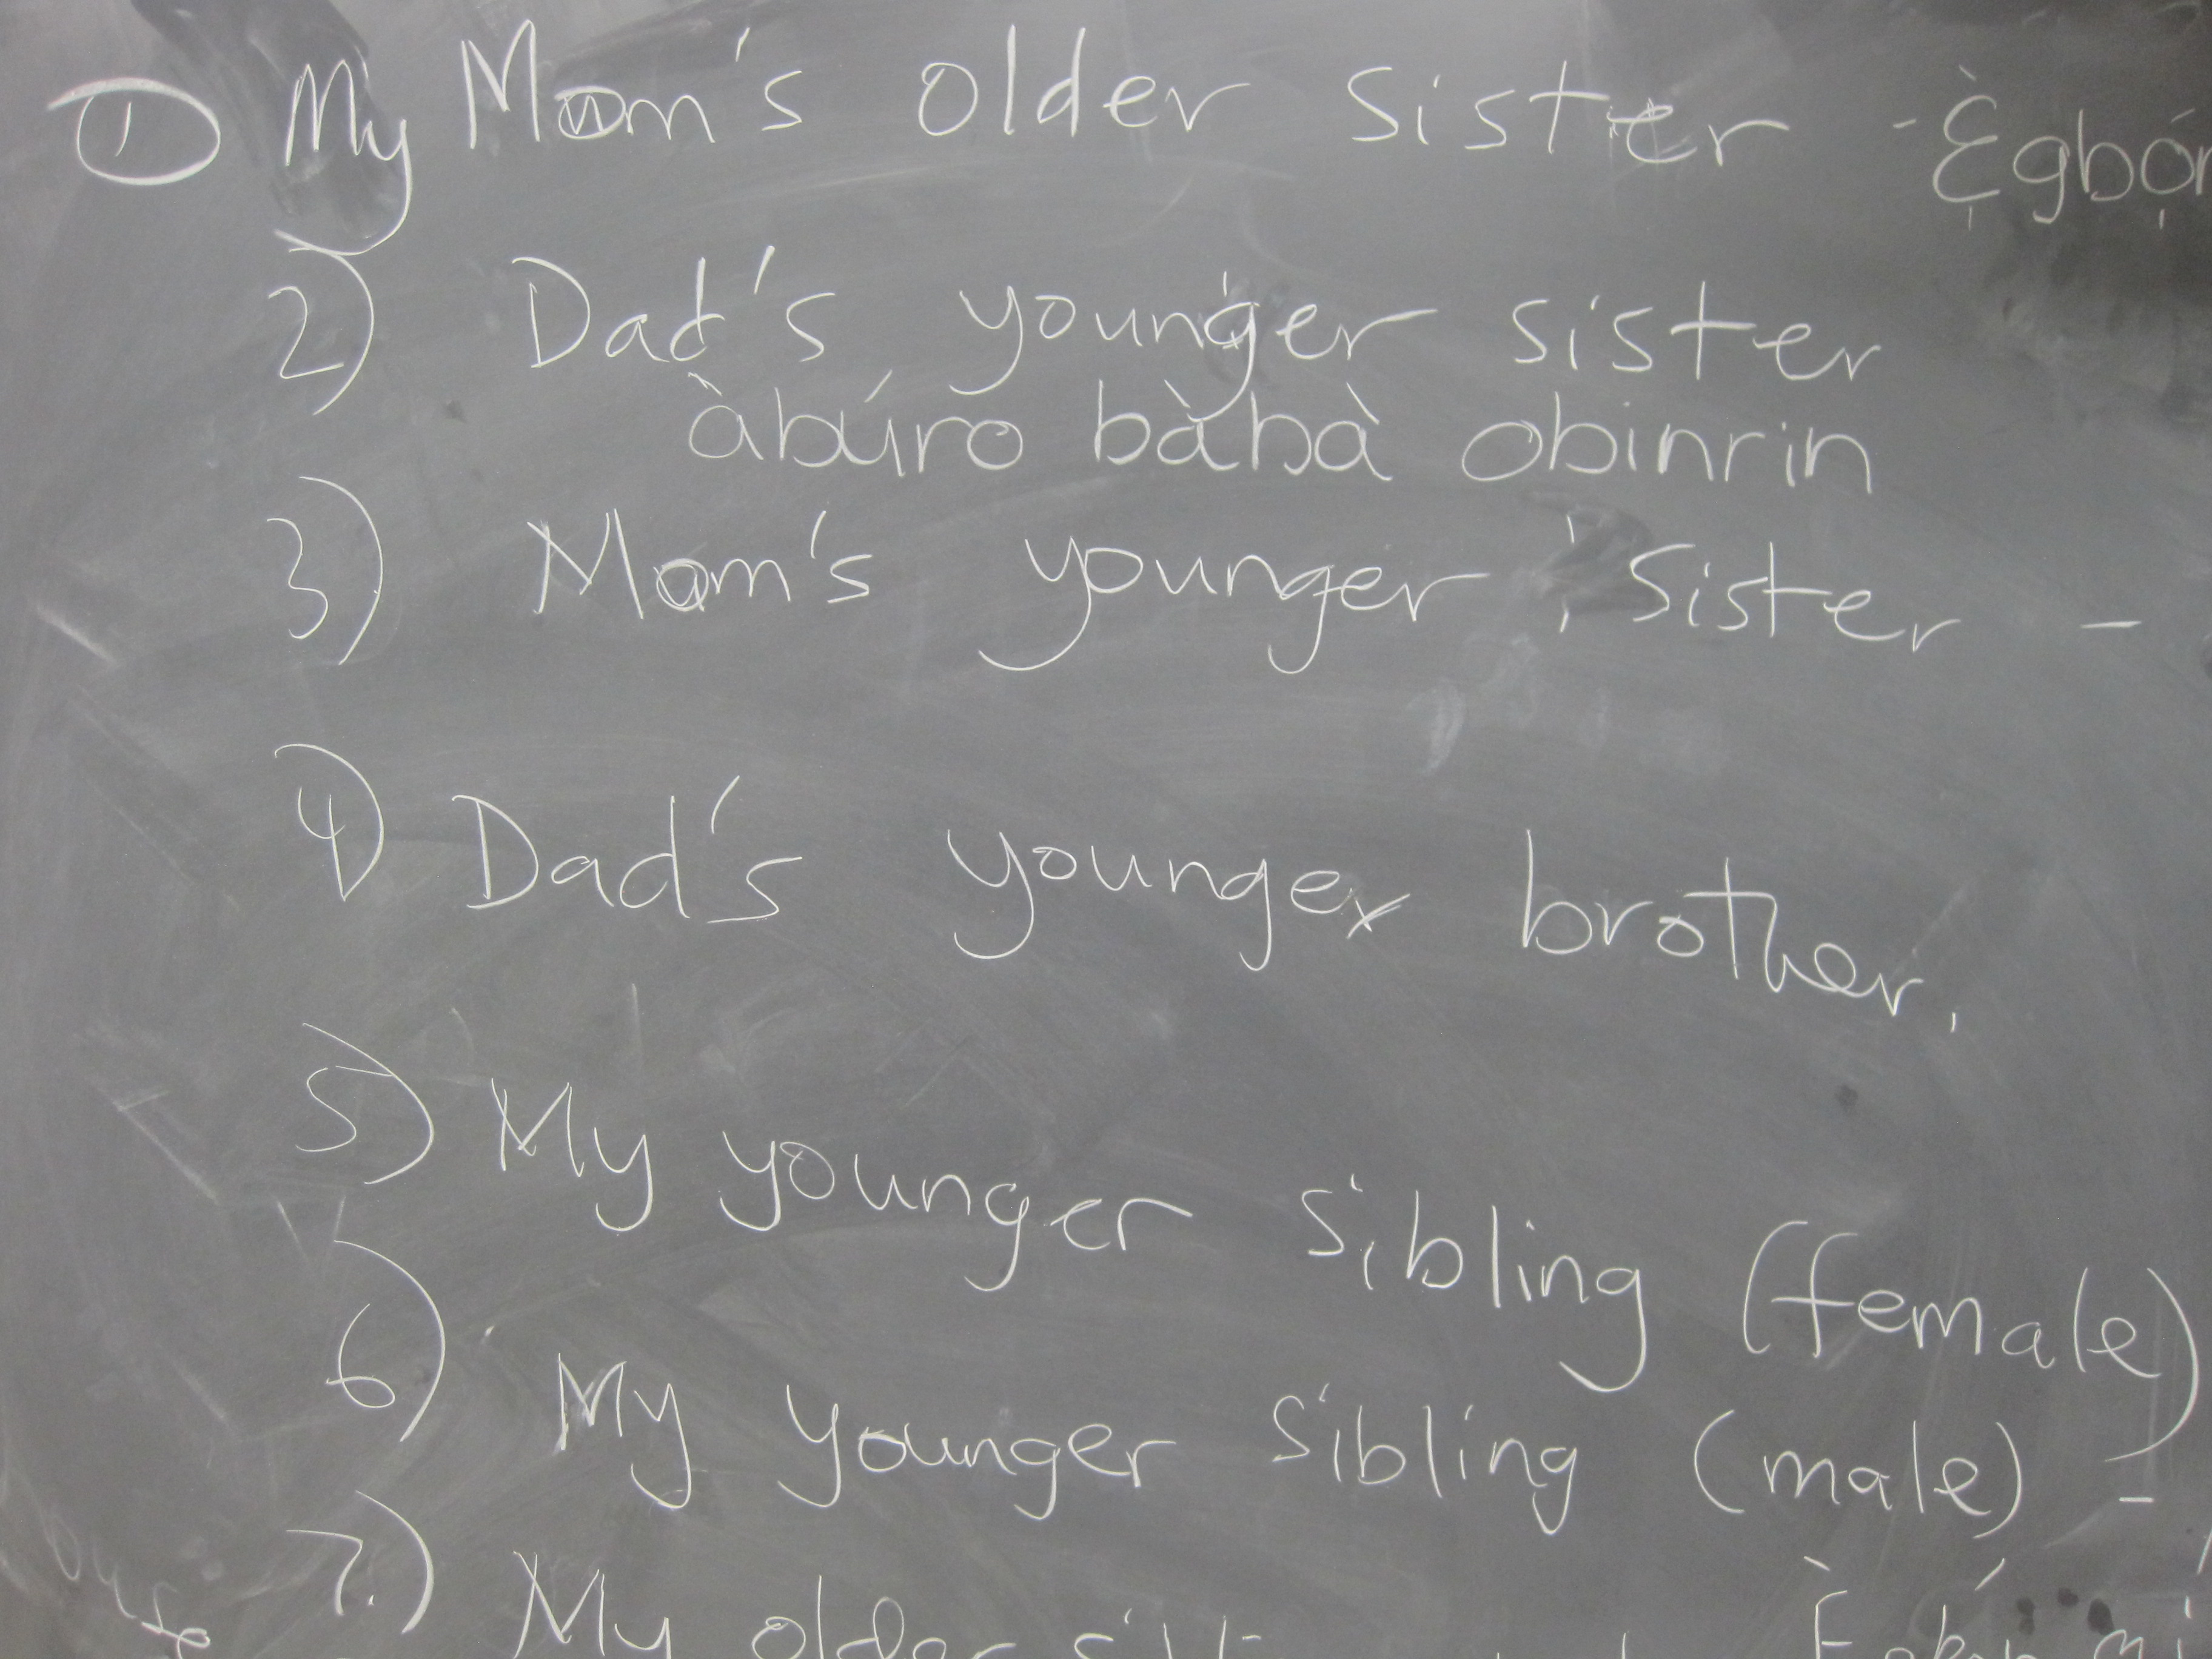 ① My Mom's older sister - Ẹ̀gbọ́n
2) Dad's younger sister
àbúro bàbà obinrin
3) Mom's younger sister -
4) Dad's younger brother.
5) My younger sibling (female)
6) My younger sibling (male) -
7.) My older